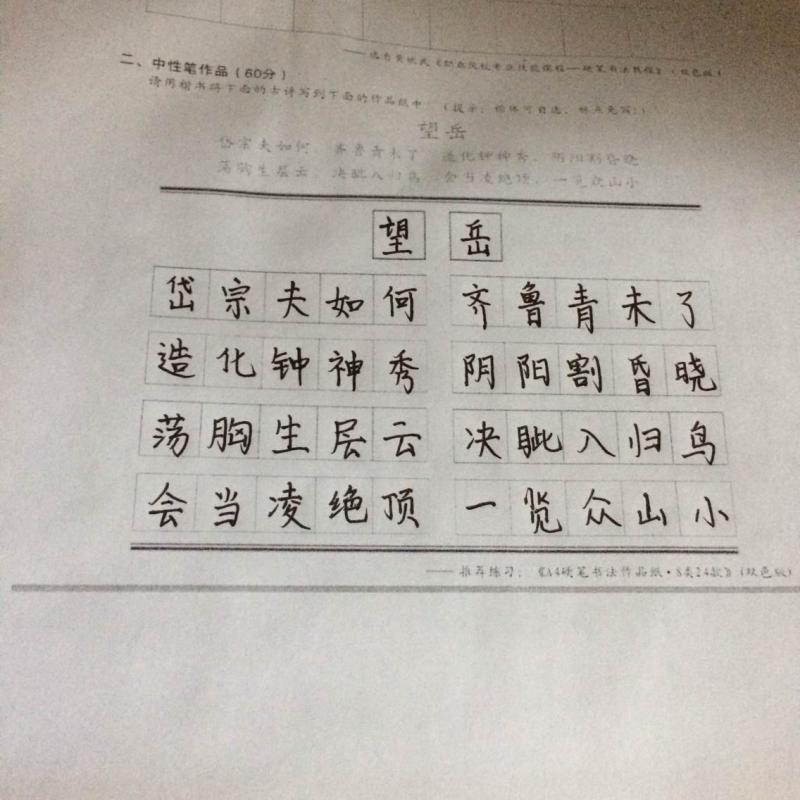 ——选自黄钦民《职业院校专业技能课程——硬笔书法教程》(双色版)
二、中性笔作品(60分)
请用楷书将下面的古诗写到下面的作品纸中 (提示:楷体可自选,标点免写!)
望岳
岱宗夫如何,齐鲁青未了 造化钟神秀,阴阳割昏晓
荡胸生层云,决眦入归鸟 会当凌绝顶,一览众山小
望岳
岱宗夫如何 齐鲁青未了
造化钟神秀 阴阳割昏晓
荡胸生层云 决眦入归鸟
会当凌绝顶 一览众山小
——推荐练习:《A4硬笔书法作品纸·8类24款》(双色版)